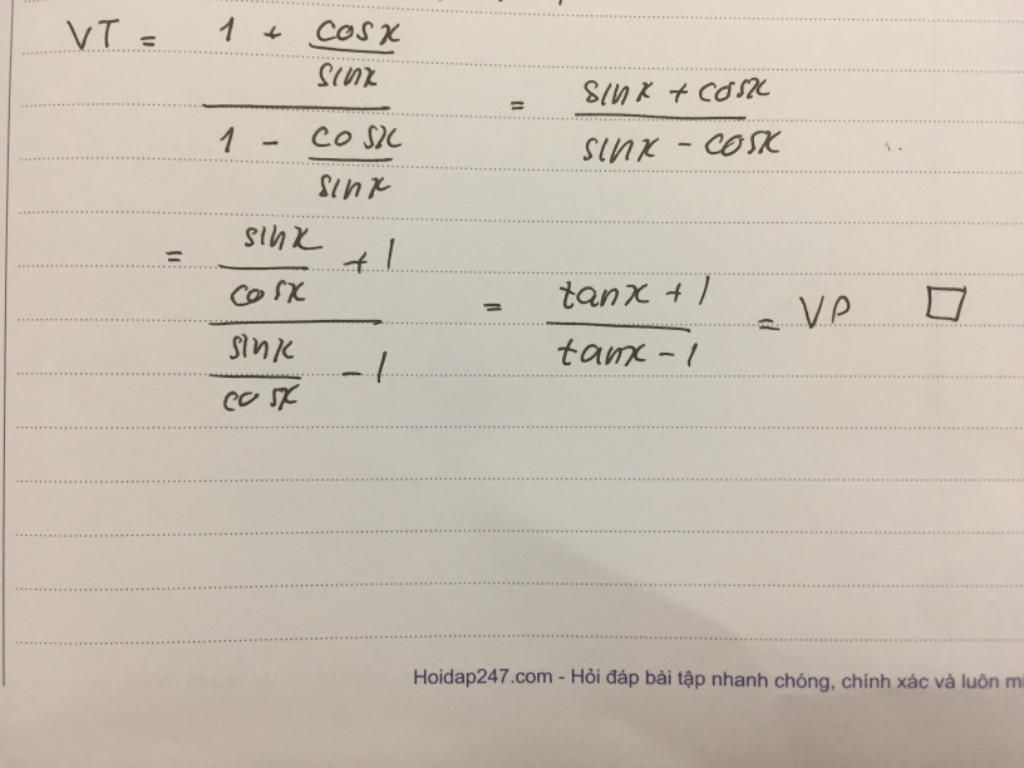 VT = (1 + cosx/sinx)/(1 - cosx/sinx) = (sinx + cosx)/(sinx - cosx)
= (sinx/cosx + 1)/(sinx/cosx - 1) = (tanx + 1)/(tanx - 1) = VP □
Hoidap247.com - Hỏi đáp bài tập nhanh chóng, chính xác và luôn